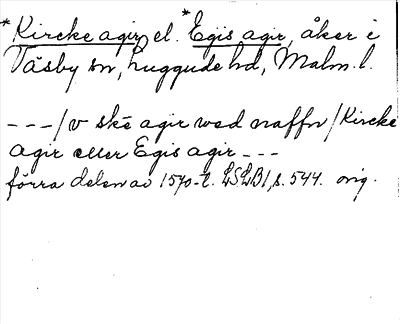 *Kircke agir, el. *Egis agir, åker i
Väsby sn, Luggude hd, Malm. l.
---/v ske agir wed naffn/Kircke
agir eller Egis agir ---
förra delen av 1570-t. LSLB1, s. 544. orig.